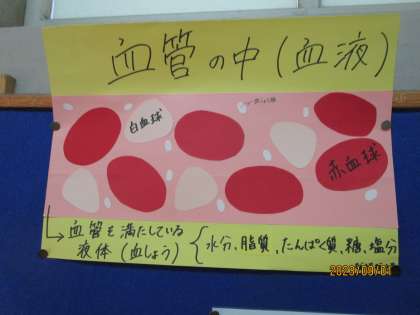 血管の中(血液)
白血球
赤血球
血管を満たしている
液体(血しょう)
水分、脂質、たんぱく質、糖、塩分
2023/09/01